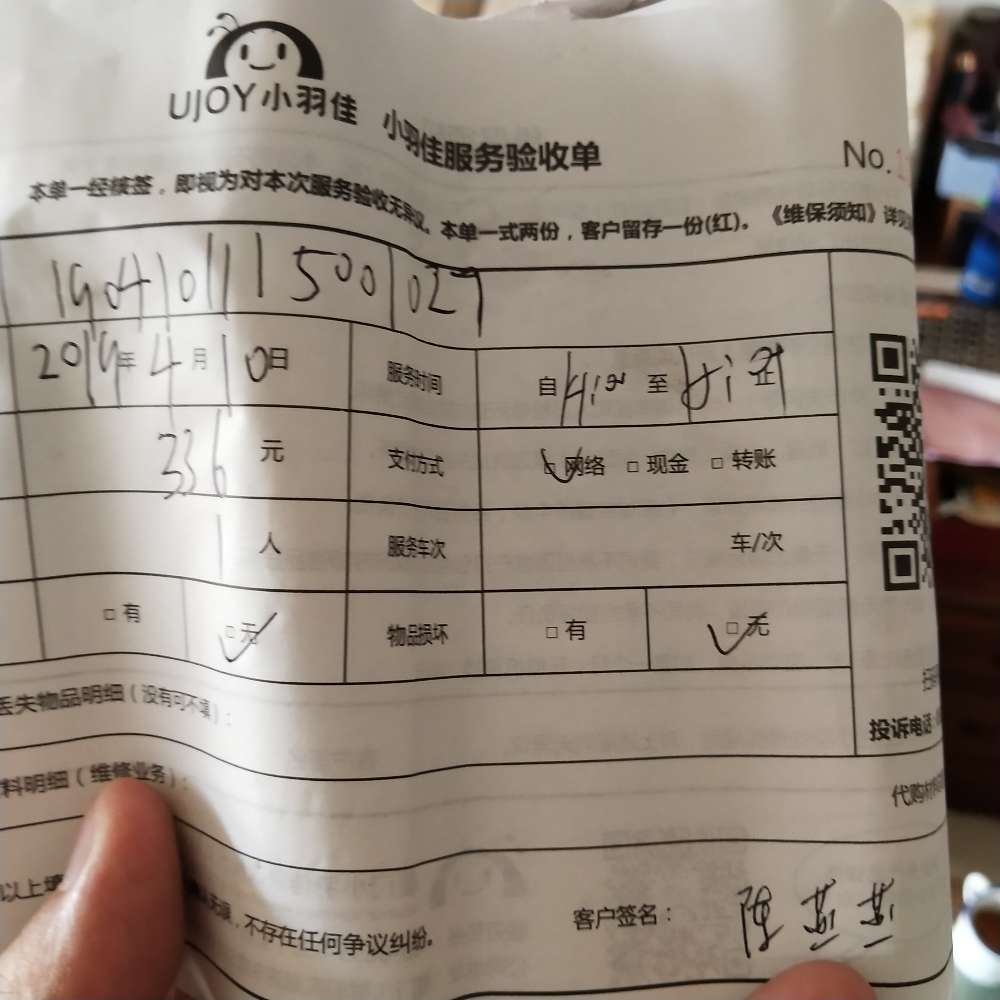 UJOY小羽佳 小羽佳服务验收单
No.1
本单一经核签，即视为对本次服务验收无异议。本单一式两份，客户留存一份(红)。《维保须知》详见
1904101115001027
2019年4月10日 服务时间 自 至
336元 支付方式 □网络 □现金 □转账
1人 服务车次 车/次
□有 □无 物品损坏 □有 □无
丢失物品明细(没有可不填):
料明细(维修业务):
投诉电话
代购材料
以上填 无误，不存在任何争议纠纷。
客户签名: 陈燕燕